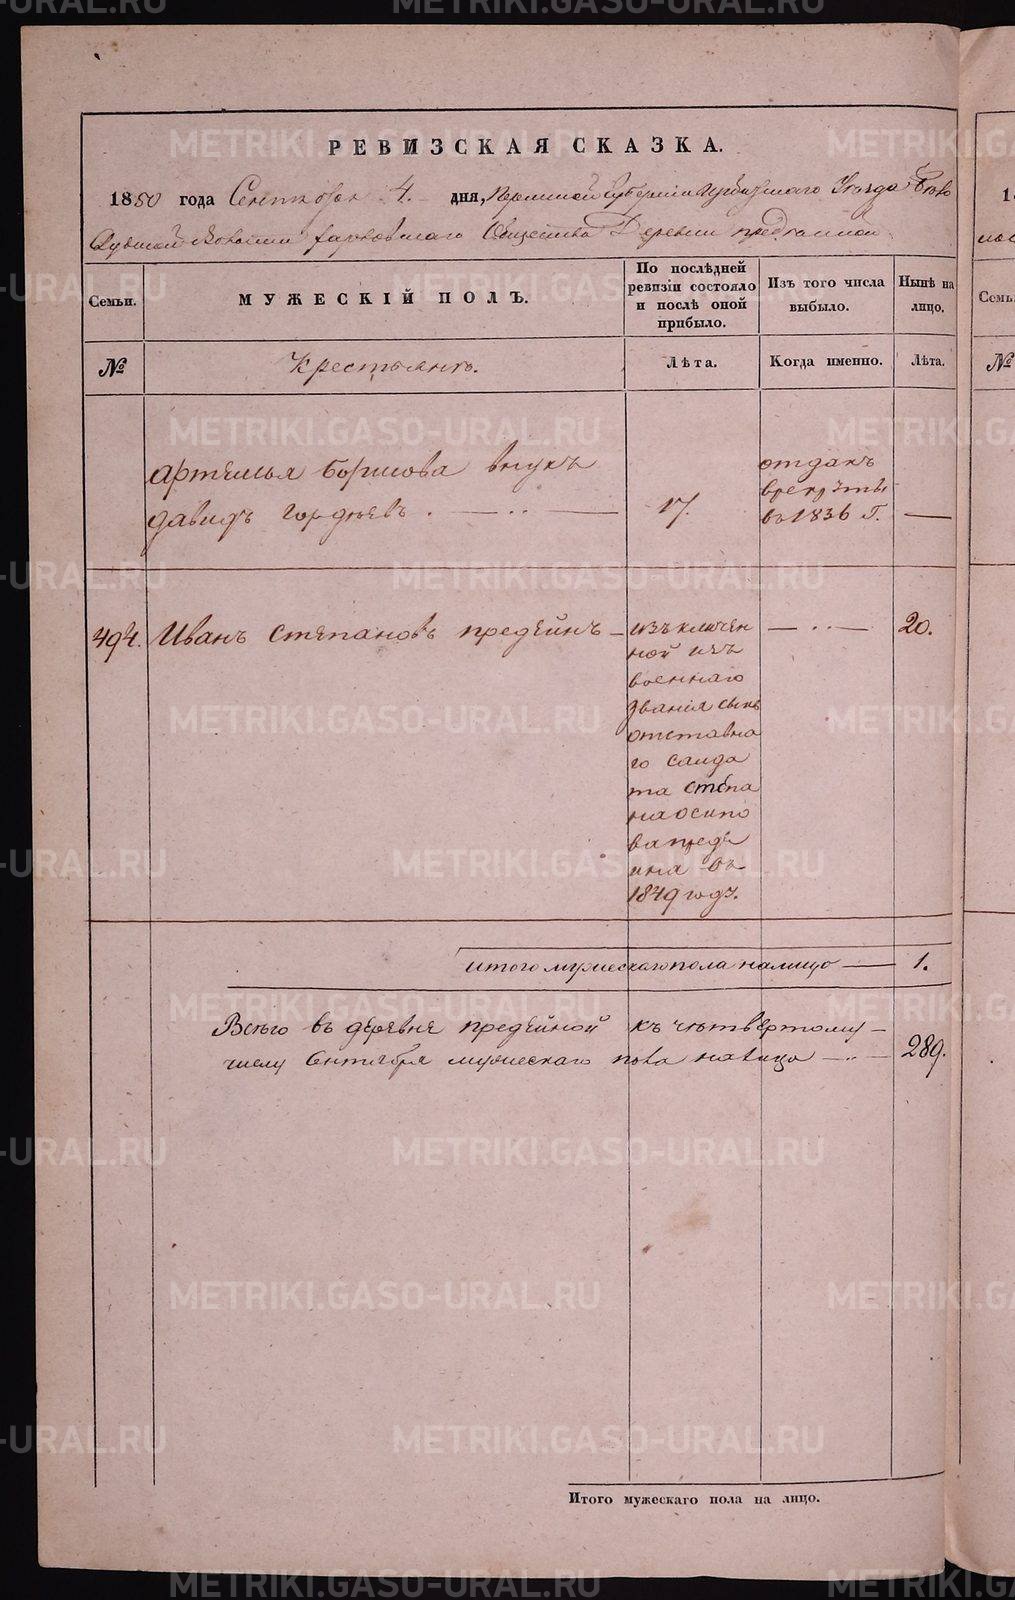 РЕВИЗСКАЯ СКАЗКА.
1850 года Сентября 4. дня, Пермской Губернии Ирбитскаго Уезда Бело
Слудской волости Харловскаго Общества Деревни Предеиной
Семьи.
МУЖЕСКІЙ ПОЛЪ.
По последней ревизіи состояло и послѣ оной прибыло.
Изъ того числа выбыло.
Нынѣ на лицо.
№
Крестьянъ.
Лѣта.
Когда именно.
Лѣта.
Артемья Борисова внукъ
Давидъ Гордѣевъ . — .. —
17.
отданъ
врекруты
въ 1836 Г.
—
494. Иванъ Степановъ Предеинъ —
изъключен
ной изъ
военнаго
званія сынъ
отставна
го салда
та Степа
на Осипо
ва Преде
ина въ
1849 годъ.
— .. —
20.
итого мужескаго пола налицо — 1.
Всего въ деревне Предеиной къ четвертому —
числу Сентября мужескаго пола налицо — .. — 289.
Итого мужескаго пола на лицо.
METRIKI.GASO-URAL.RU